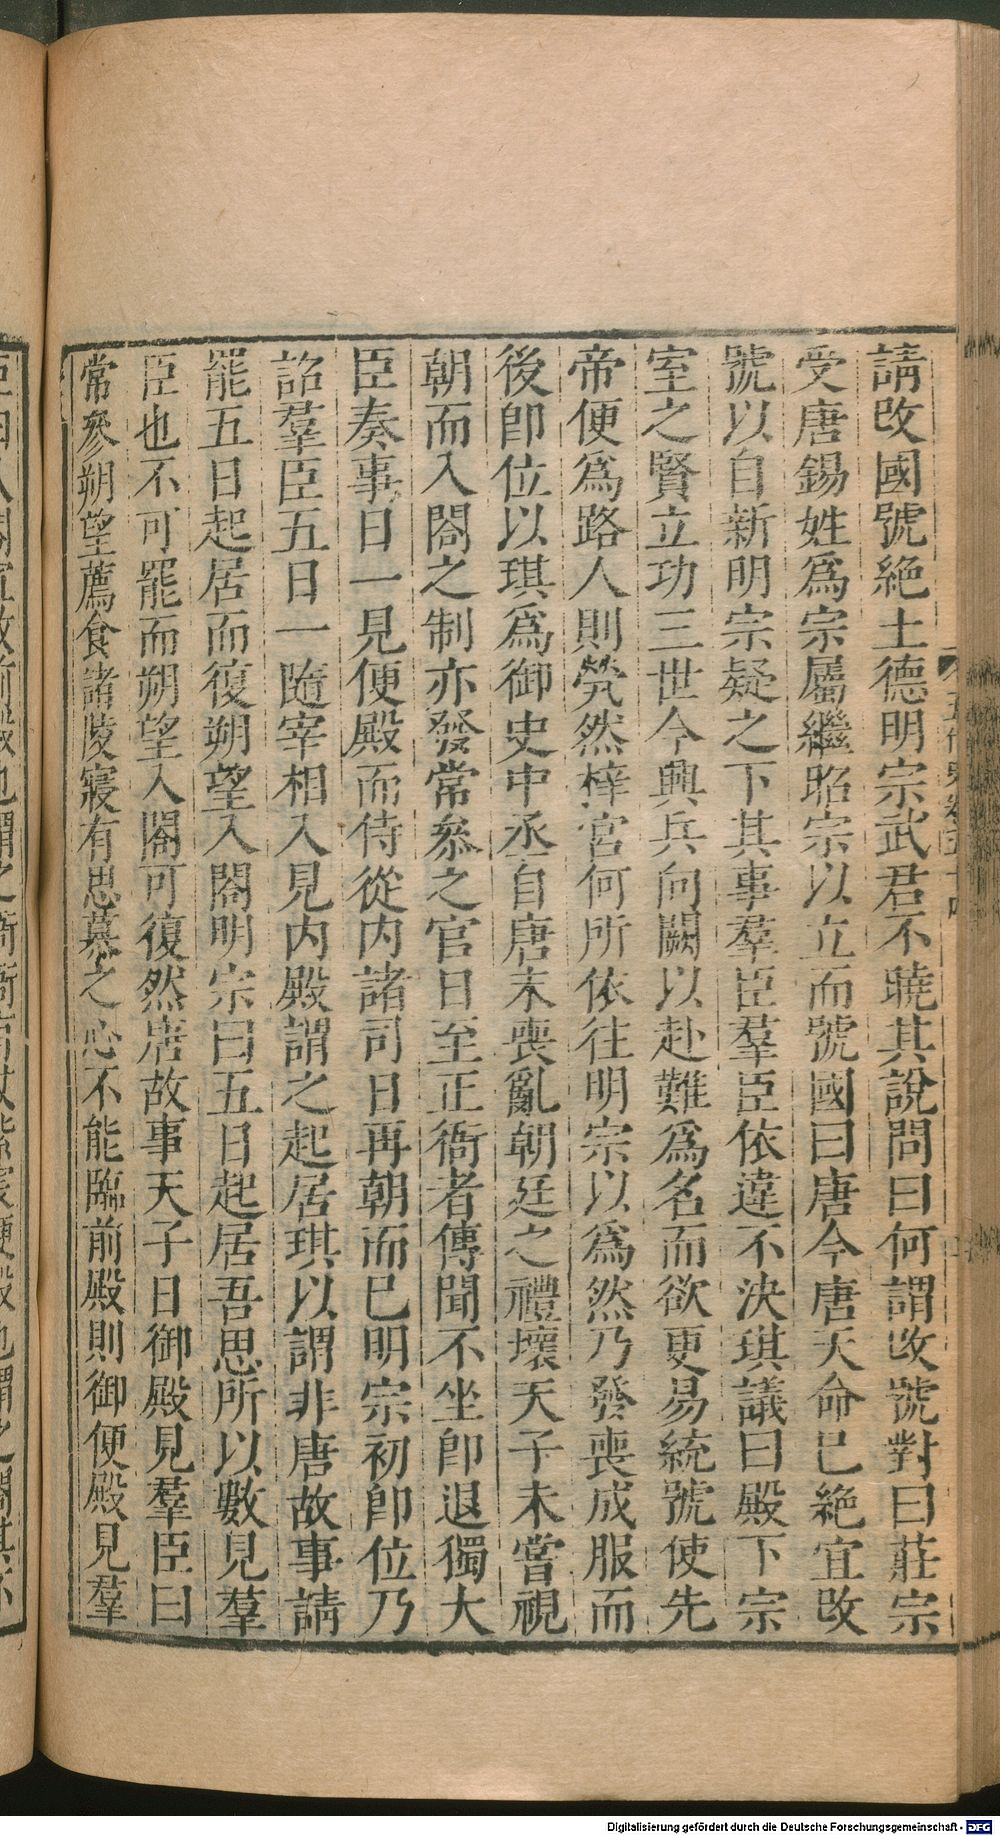 請改國號絕土德明宗武君不曉其說問曰何謂改號對曰莊宗
受唐錫姓爲宗屬繼昭宗以立而號國曰唐今唐天命已絕宜改
號以自新明宗疑之下其事羣臣羣臣依違不決琪議曰殿下宗
室之賢立功三世今興兵向闕以赴難爲名而欲更易統號使先
帝便爲路人則煢然梓宮何所依往明宗以爲然乃發喪成服而
後即位以琪爲御史中丞自唐末喪亂朝廷之禮壞天子未嘗視
朝而入閤之制亦發常叅之官日至正衙者傳聞不坐即退獨大
臣奏事日一見便殿而侍從內諸司日再朝而已明宗初即位乃
詔羣臣五日一隨宰相入見內殿謂之起居琪以謂非唐故事請
罷五日起居而復朔望入閤明宗曰五日起居吾思所以數見羣
臣也不可罷而朔望入閤可復然唐故事天子日御殿見羣臣曰
常參朔望薦食諸陵寢有思慕之心不能臨前殿則御便殿見羣
Digitalisierung gefördert durch die Deutsche Forschungsgemeinschaft - DFG